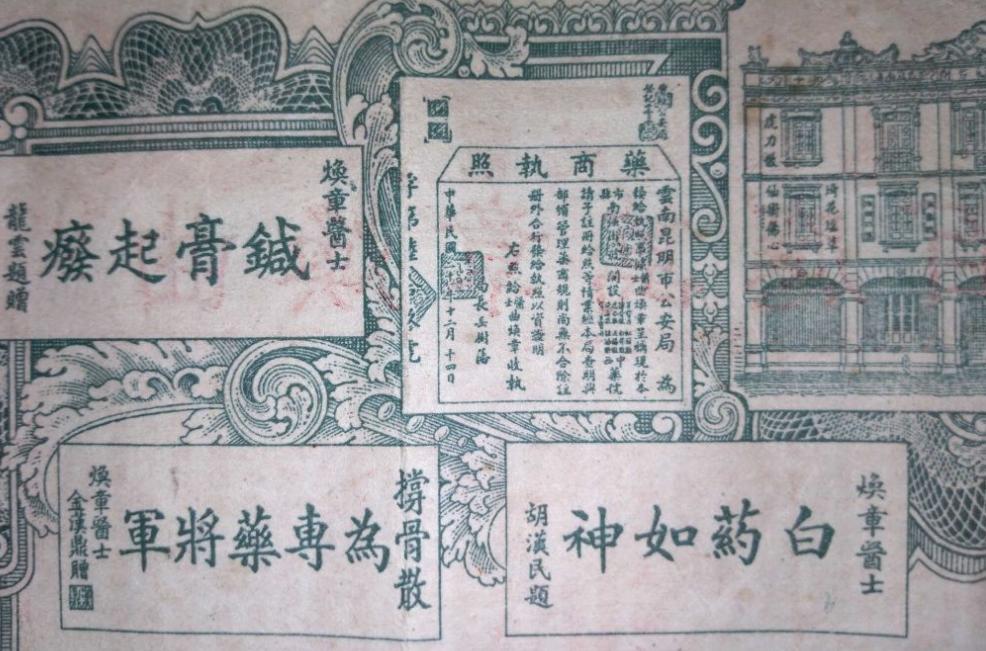 煥章醫士
鍼膏起廢
龍雲題贈
藥商執照
雲南昆明市公安局 為
發給執照事 曲煥章呈稱現於本
市 開設 中藥
請予註冊給照等情業經本局查明與
部頒管理藥商規則尚無不合除註
冊外合行發給執照以資證明
右照給 曲煥章收執
局長岳樹藩
中華民國 年十二月十四日
虎力散
煥章醫士
白葯如神
胡漢民題
撐骨散
為專藥將軍
煥章醫士
金漢鼎贈